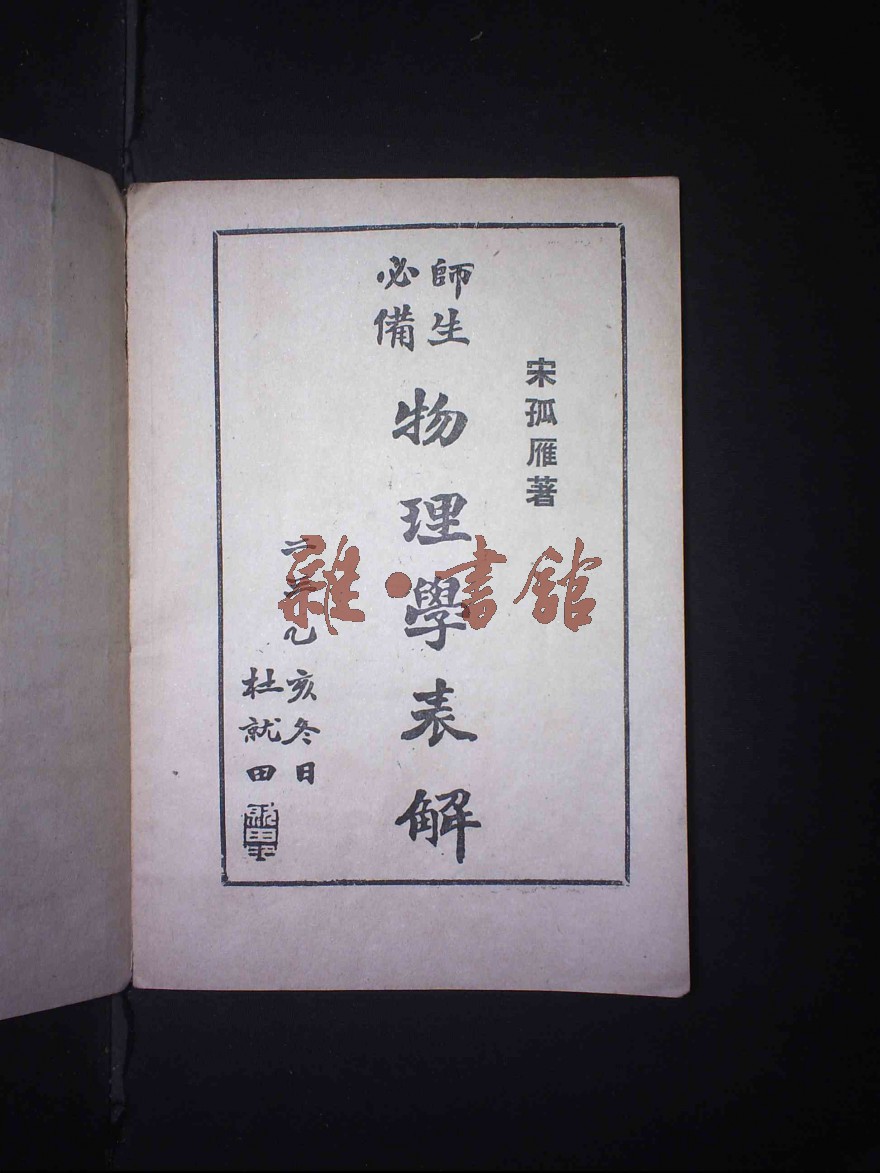 宋孤雁著
師生
必備
物理學表解
乙亥冬日
杜就田
雜·書館